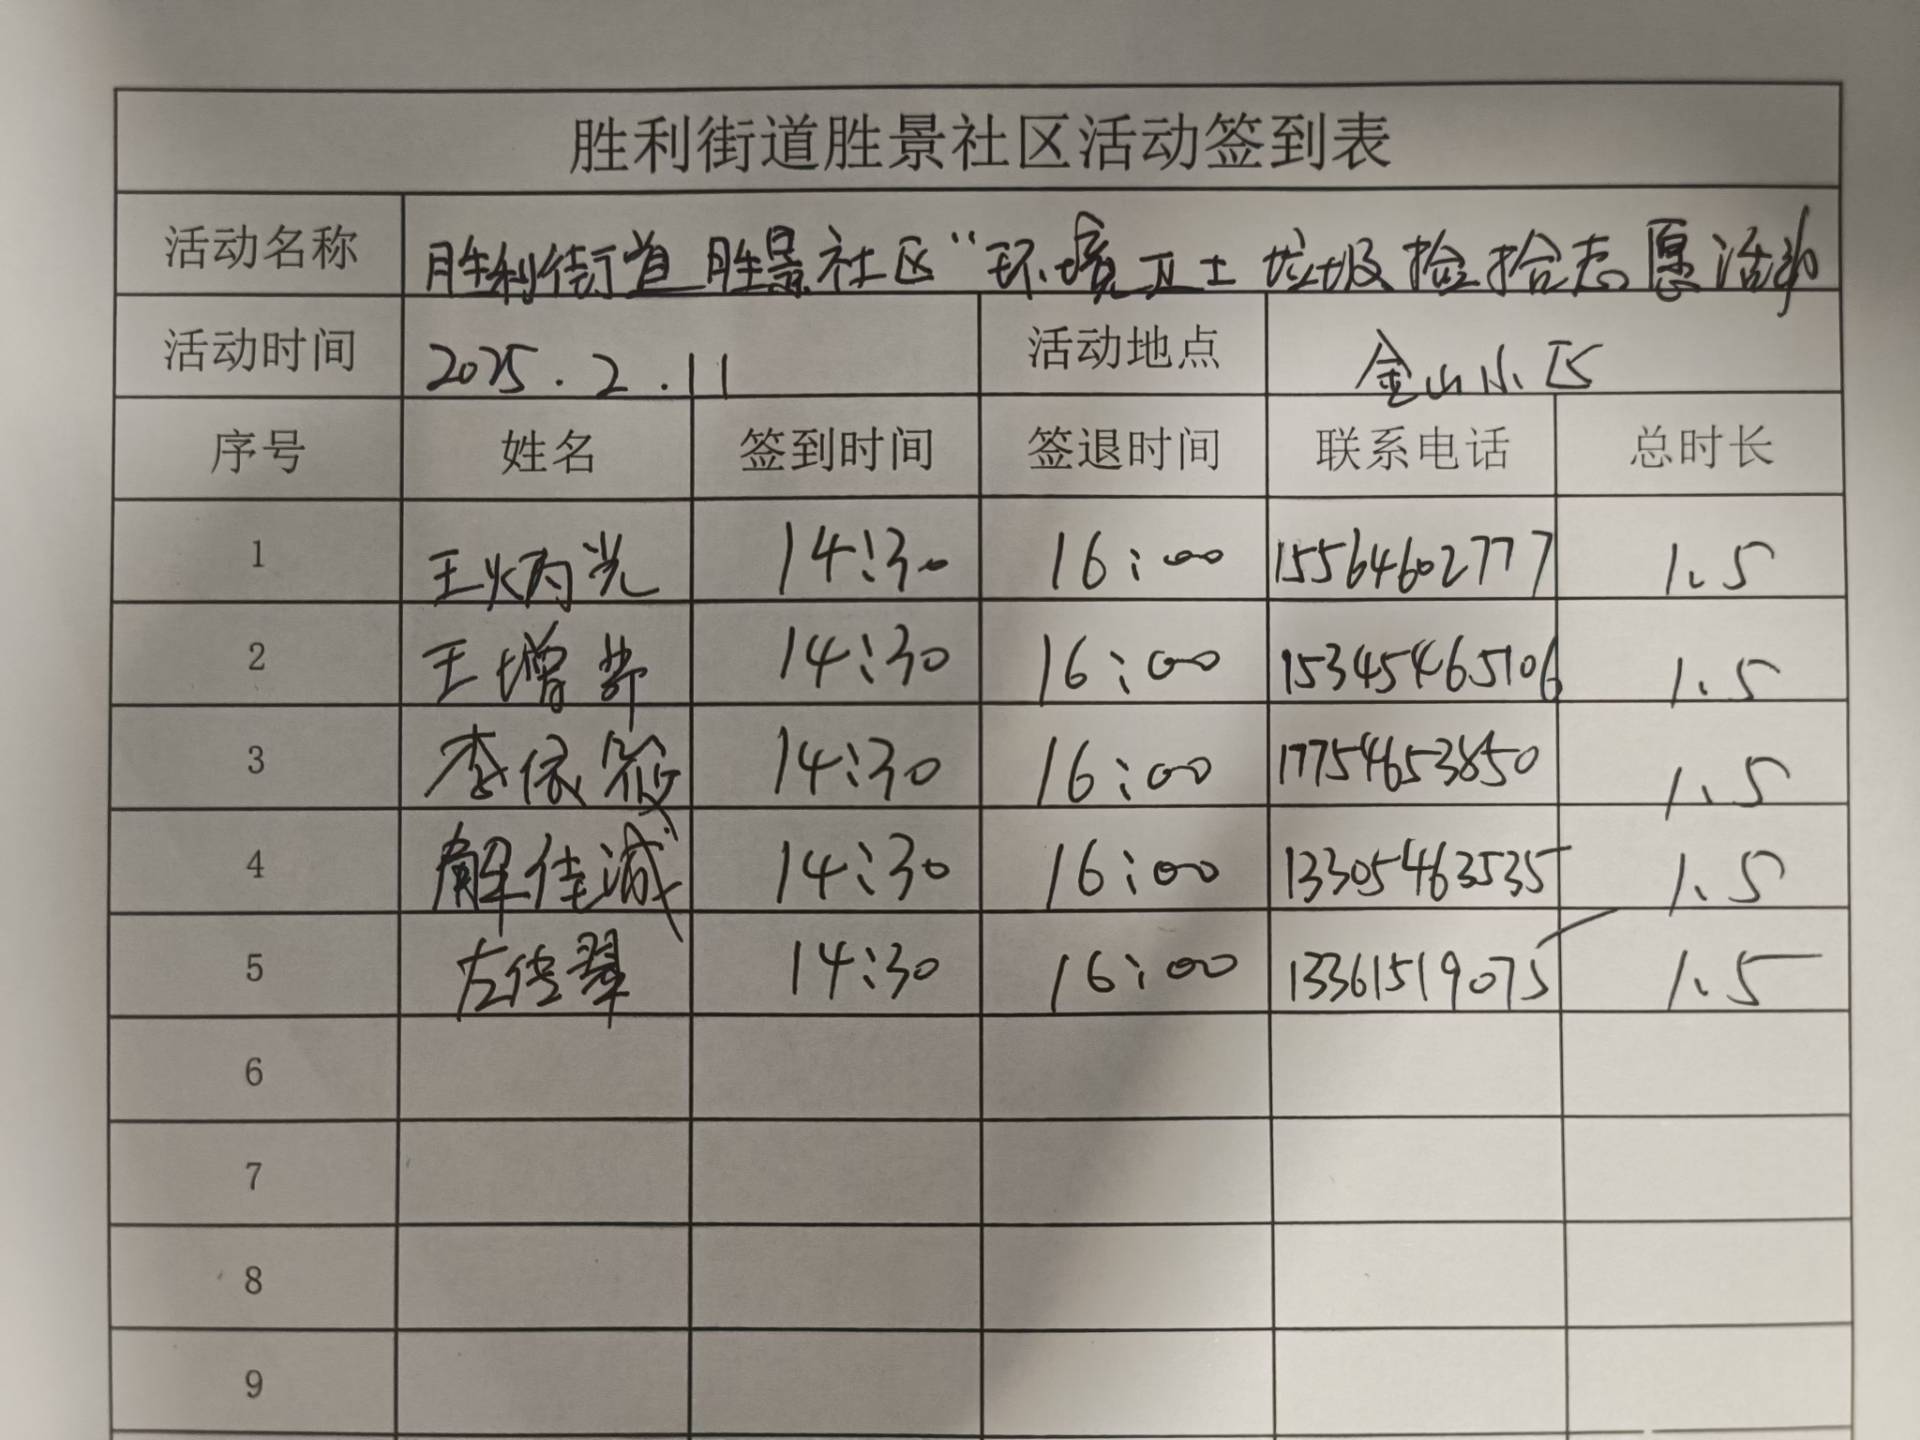 胜利街道胜景社区活动签到表
活动名称 胜利街道胜景社区“环境卫士垃圾捡拾志愿活动
活动时间 2025.2.11 活动地点 金山小区
序号 姓名 签到时间 签退时间 联系电话 总时长
1 王炳光 14:30 16:00 15564602777 1.5
2 王增 14:30 16:00 15345465106 1.5
3 李依 14:30 16:00 17754653850 1.5
4 解佳诚 14:30 16:00 13305463535 1.5
5 左佳翠 14:30 16:00 13361519075 1.5
6
7
8
9